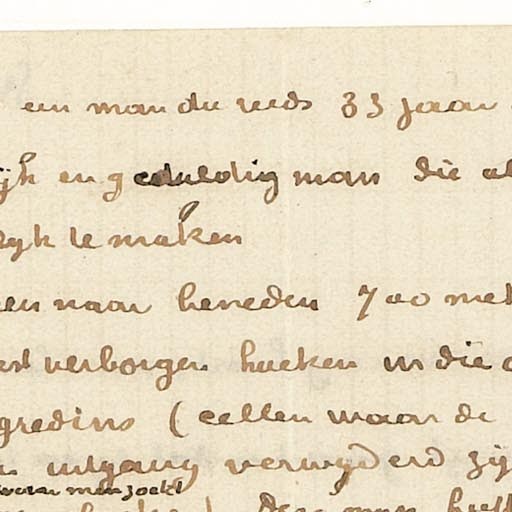 een man die reeds 33 jaar
ijk en geduldig man die al
lyk te maken
en naar beneden 700 met
st verborgen hoeken in die
gredins (cellen waar de
uitgang verwyderd zij
waar men zoekt